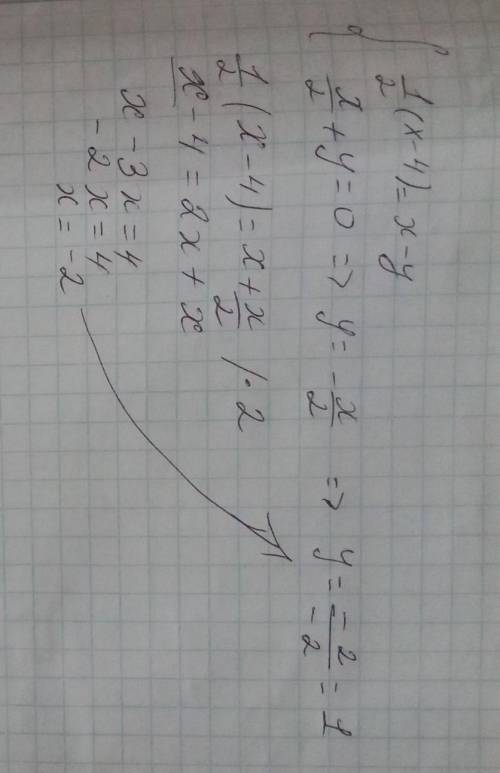 { 1/2 (x-4) = x-y
x/2 + y = 0 => y = -x/2 => y = -2/-2 = 1
1/2 (x-4) = x + x/2 /·2
x - 4 = 2x + x
x - 3x = 4
-2x = 4
x = -2